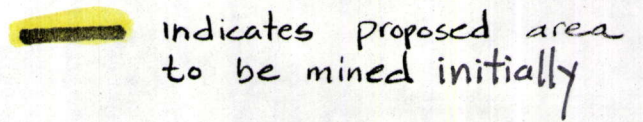 Indicates proposed area
to be mined initially